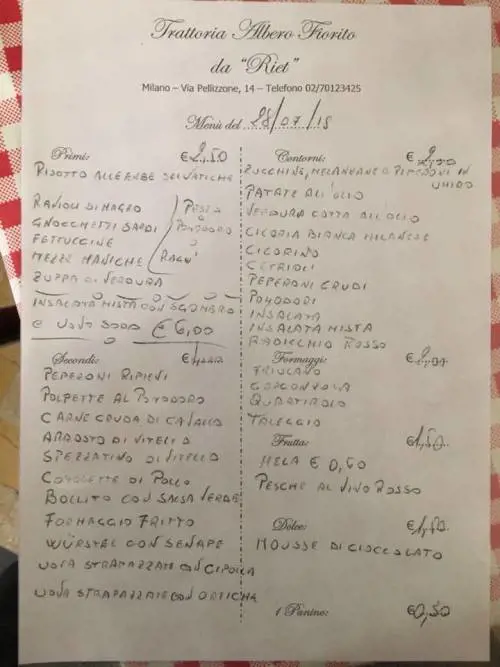 Trattoria Albero Fiorito
da "Riet"
Milano – Via Pellizzone, 14 – Telefono 02/70123425
Menù del 28/07/18
Primi: €2,50
RISOTTO ALLE ERBE SELVATICHE
RAVIOLI DI MAGRO
GNOCCHETTI SARDI
FETTUCCINE
MEZZE MANICHE
PESTO
POMODORO
O
RAGU'
ZUPPA DI VERDURA
INSALATA MISTA CON SGOMBRO
E UOVO SODO €6,00
Secondi: €
PEPERONI RIPIENI
POLPETTE AL POMODORO
CARNE CRUDA DI CAVALLO
ARROSTO DI VITELLO
SPEZZATINO DI VITELLO
COTOLETTE DI POLLO
BOLLITO CON SALSA VERDE
FORMAGGIO FRITTO
WÜRSTEL CON SENAPE
UOVA STRAPAZZATE CON CIPOLLA
UOVA STRAPAZZATE CON ORTICHE
Contorni: €2,00
ZUCCHINE, MELANZANE O PEPERONI IN
UMIDO
PATATE ALL'OLIO
VERDURA COTTA ALL'OLIO
CICORIA BIANCA MILANESE
CICORINO
CETRIOLI
PEPERONI CRUDI
POMODORI
INSALATA
INSALATA MISTA
RADICCHIO ROSSO
Formaggi: €2,00
FRIULANO
GORGONZOLA
QUARTIROLO
TALEGGIO
Frutta: €1,50
MELA € 0,60
PESCHE AL VINO ROSSO
Dolce: €
MOUSSE DI CIOCCOLATO
1 Panino: €0,50